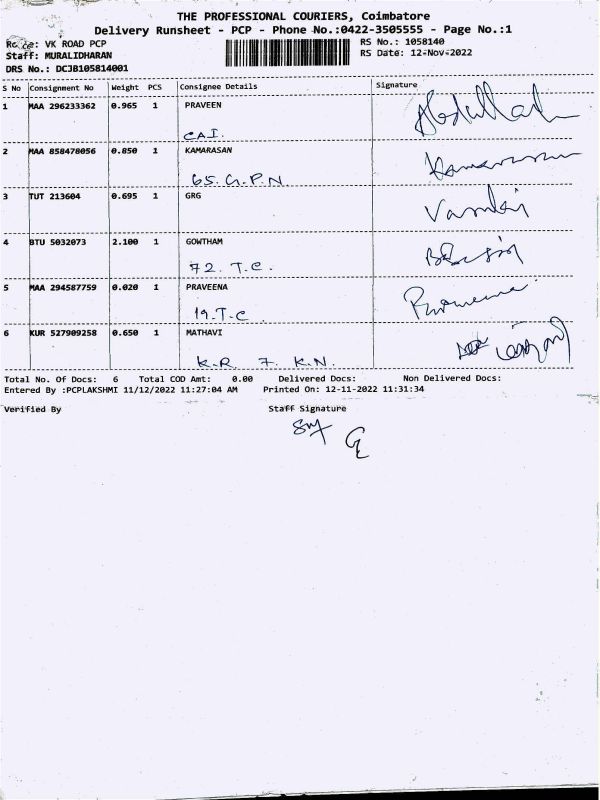 THE PROFESSIONAL COURIERS, Coimbatore
Delivery Runsheet - PCP - Phone No.:0422-3505555 - Page No.:1
VK ROAD PCP RS No.: 1058140
Staff: MURALIDHARAN RS Date: 12-Nov-2022
DRS No.: DCJB105814001
S No Consignment No Weight PCS Consignee Details Signature
1 MAA 296233362 0.965 1 PRAVEEN Abdullah
CAI.
2 MAA 858478056 0.850 1 KAMARASAN
65. G. P. N
3 TUT 213604 0.695 1 GRG
4 BTU 5032073 2.100 1 GOWTHAM
72. T.C.
5 MAA 294587759 0.020 1 PRAVEENA
19. T.C
6 KUR 527909258 0.650 1 MATHAVI
K.R. 7. K.N.
Total No. Of Docs: 6 Total COD Amt: 0.00 Delivered Docs: Non Delivered Docs:
Entered By :PCPLAKSHMI 11/12/2022 11:27:04 AM Printed On: 12-11-2022 11:31:34
Verified By Staff Signature